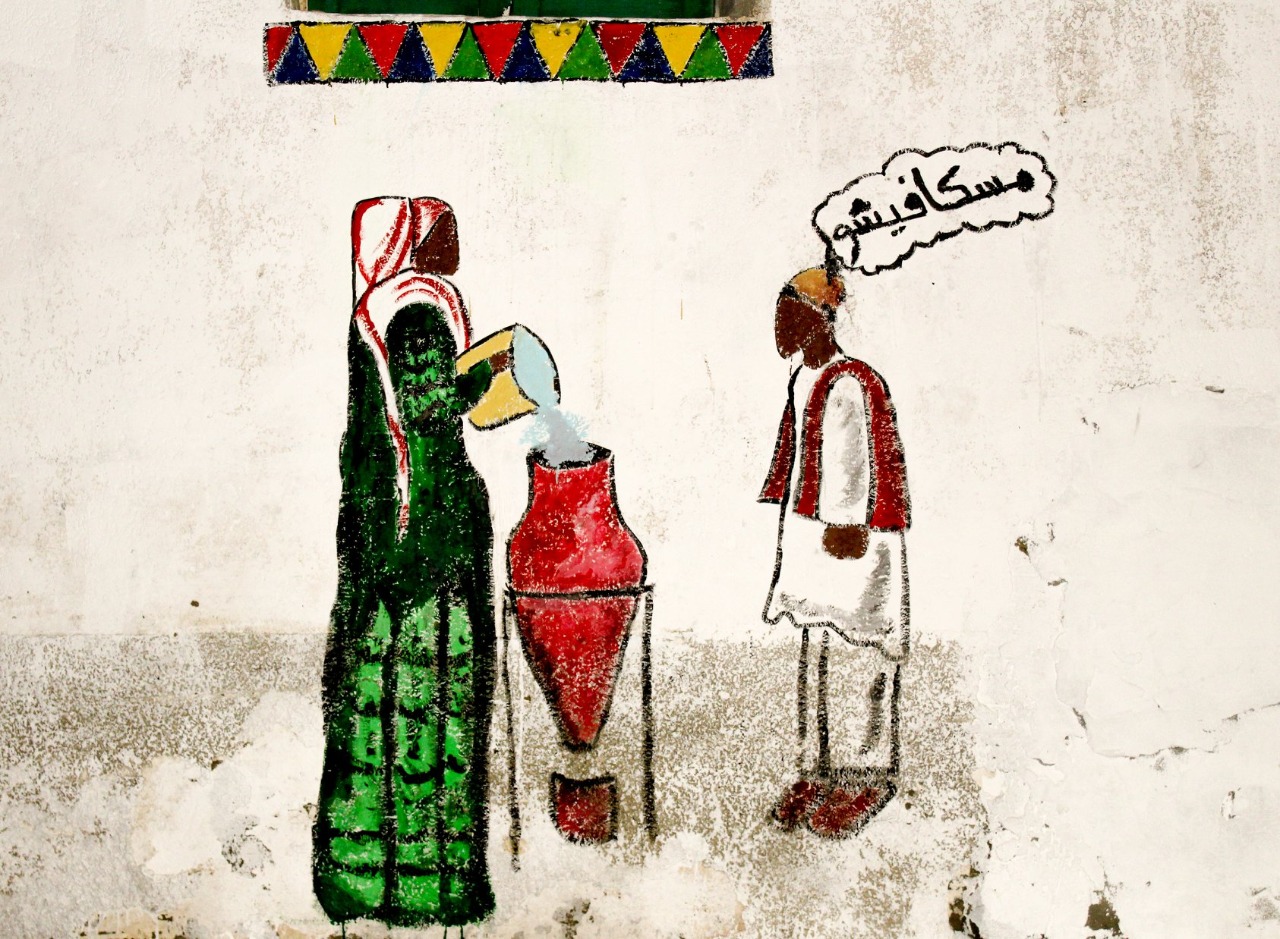 مسكافيشو